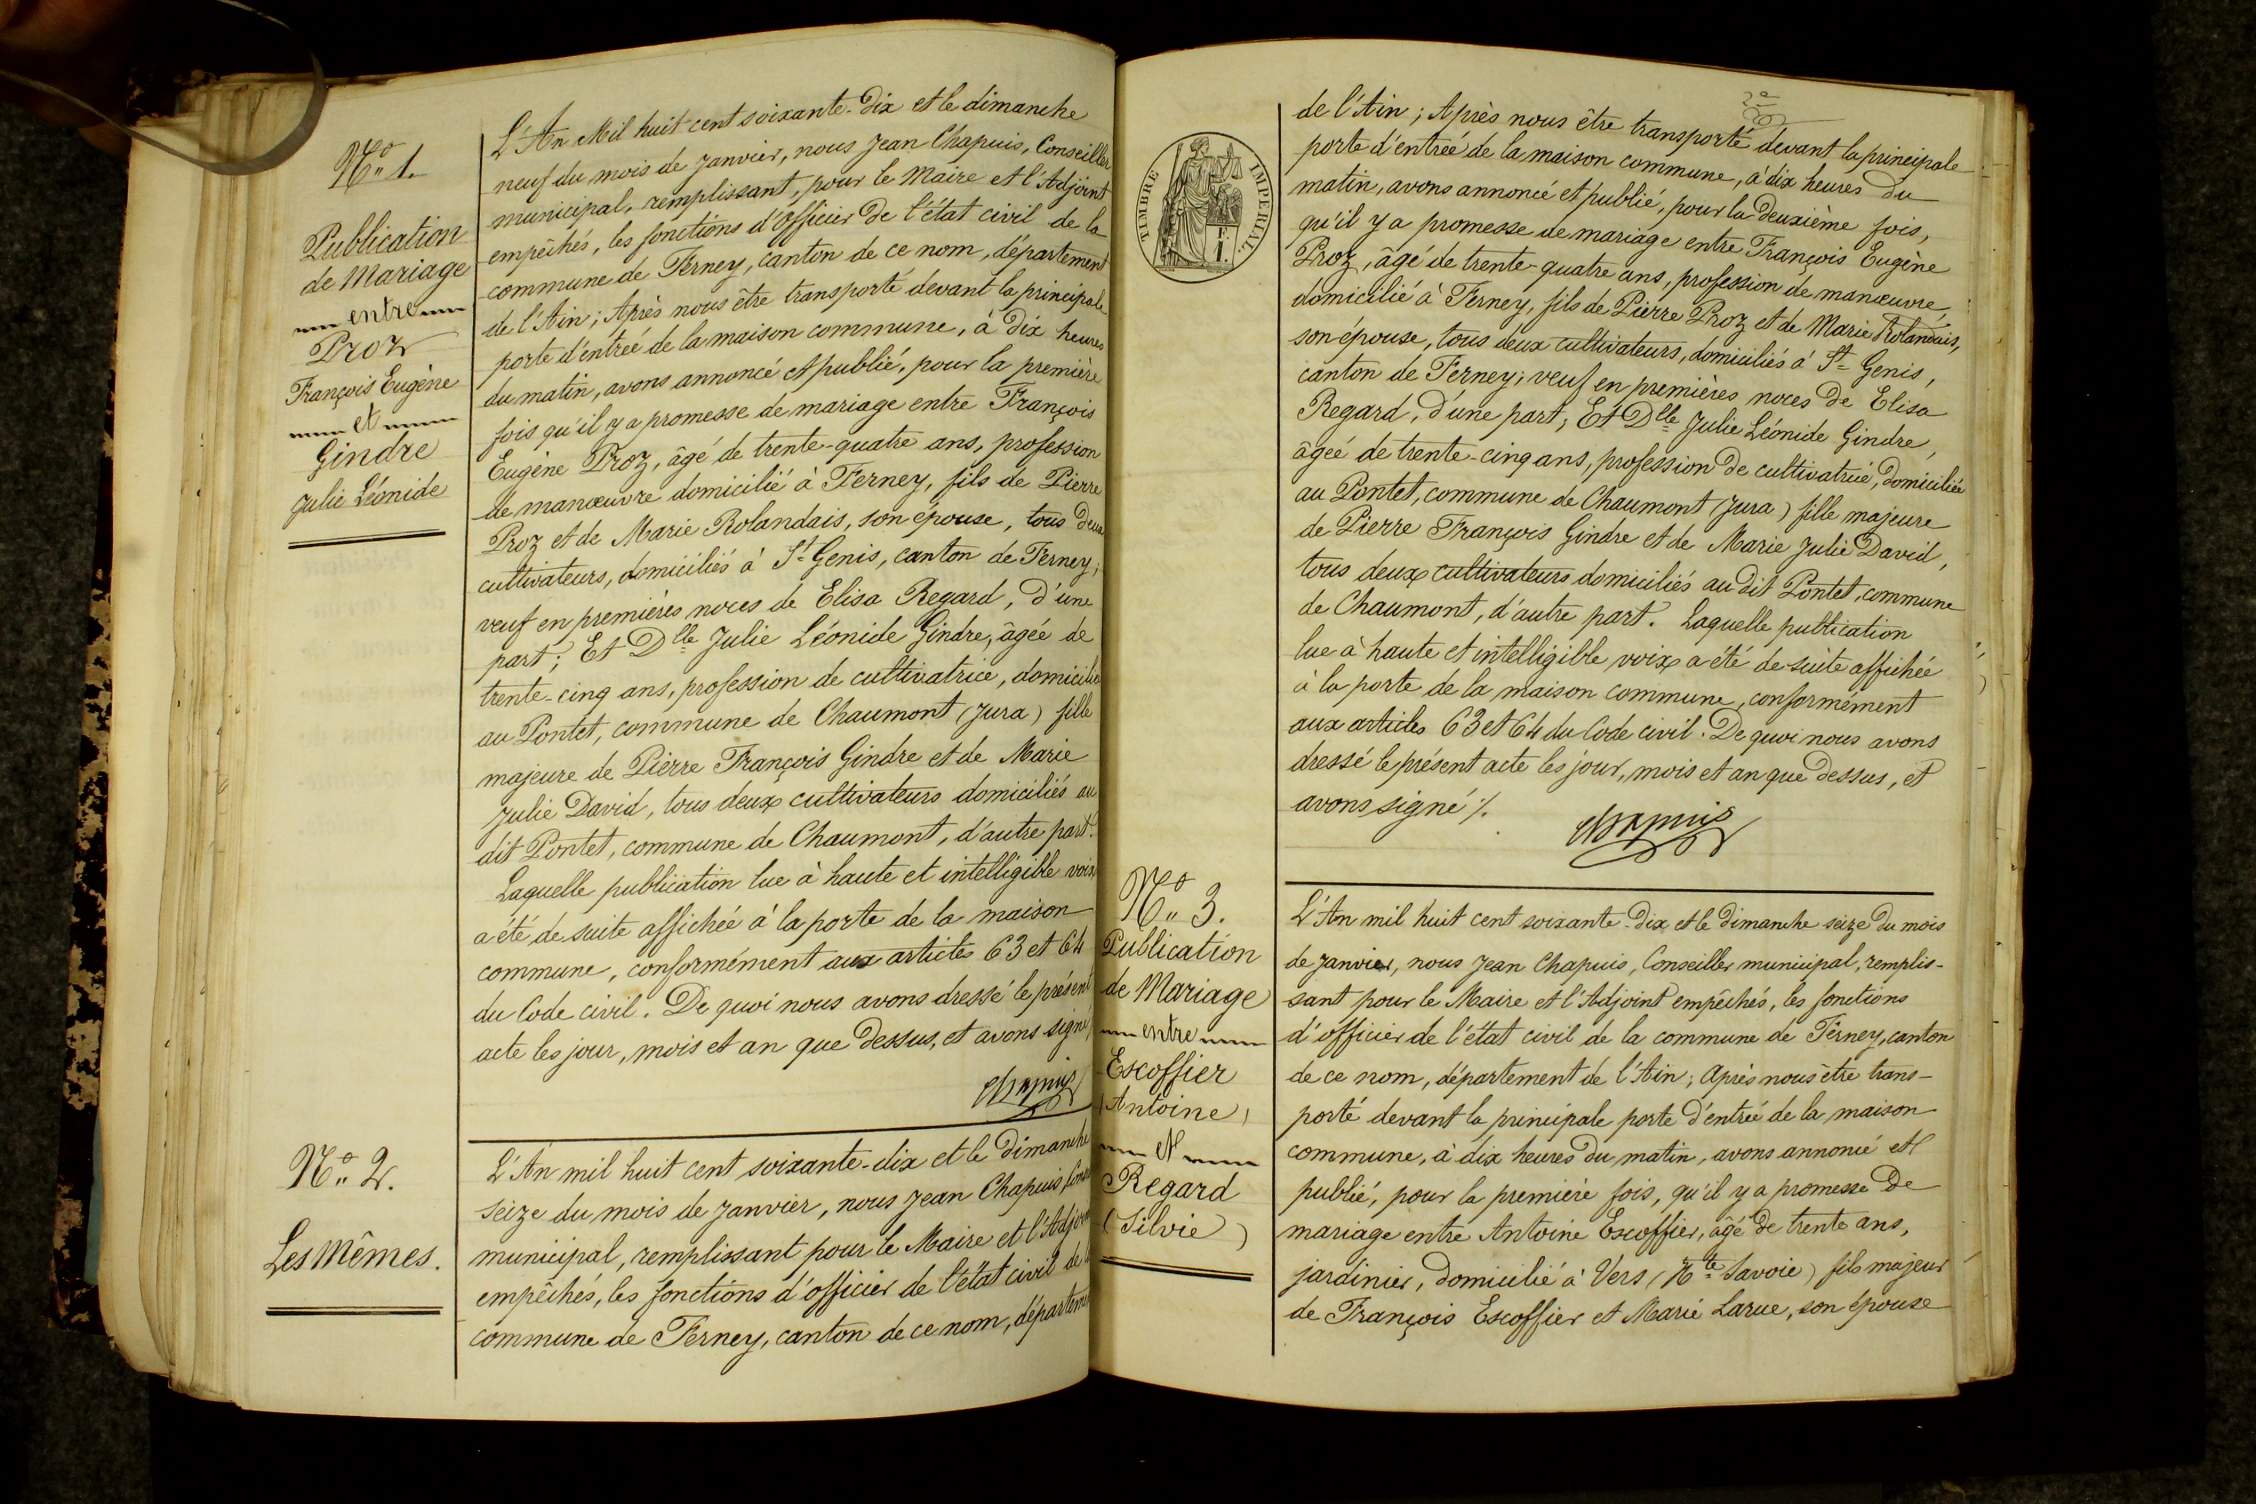 N° 1.
Publication
de Mariage
entre
Proz
François Eugène
et
Gindre
Julie Léonide
L'An Mil huit cent soixante-dix et le dimanche
neuf du mois de Janvier, nous Jean Chapuis, Conseiller
municipal, remplissant, pour le Maire et l'Adjoint
empêchés, les fonctions d'officier de l'état civil de la
commune de Ferney, canton de ce nom, département
de l'Ain ; Après nous être transporté devant la principale
porte d'entrée de la maison commune, à dix heures
du matin, avons annoncé et publié, pour la première
fois qu'il y a promesse de mariage entre François
Eugène Proz, âgé de trente-quatre ans, profession
de manœuvre domicilié à Ferney, fils de Pierre
Proz et de Marie Rolandais, son épouse, tous deux
cultivateurs, domiciliés à St Genis, canton de Ferney ;
veuf en premières noces de Elisa Regard, d'une
part ; Et Dlle Julie Léonide Gindre, âgée de
trente-cinq ans, profession de cultivatrice, domiciliée
au Pontet, commune de Chaumont (Jura) fille
majeure de Pierre François Gindre et de Marie
Julie David, tous deux cultivateurs domiciliés au
dit Pontet, commune de Chaumont, d'autre part.
Laquelle publication lue à haute et intelligible voix
a été de suite affichée à la porte de la maison
commune, conformément aux articles 63 et 64
du Code civil. De quoi nous avons dressé le présent
acte les jour, mois et an que dessus, et avons signé
Chapuis
N° 2.
Les Mêmes.
L'An mil huit cent soixante-dix et le dimanche
seize du mois de Janvier, nous Jean Chapuis, Conse
municipal, remplissant pour le Maire et l'Adjoint
empêchés, les fonctions d'officier de l'état civil de la
commune de Ferney, canton de ce nom, département
2e
TIMBRE IMPÉRIAL.
de l'Ain ; Après nous être transporté devant la principale
porte d'entrée de la maison commune, à dix heures du
matin, avons annoncé et publié, pour la deuxième fois,
qu'il y a promesse de mariage entre François Eugène
Proz, âgé de trente-quatre ans, profession de manœuvre,
domicilié à Ferney, fils de Pierre Proz et de Marie Rolandais,
son épouse, tous deux cultivateurs, domiciliés à St Genis,
canton de Ferney ; veuf en premières noces de Elisa
Regard, d'une part ; Et Dlle Julie Léonide Gindre,
âgée de trente-cinq ans, profession de cultivatrice, domiciliée
au Pontet, commune de Chaumont (Jura) fille majeure
de Pierre François Gindre et de Marie Julie David,
tous deux cultivateurs domiciliés au dit Pontet, commune
de Chaumont, d'autre part. Laquelle publication
lue à haute et intelligible voix a été de suite affichée
à la porte de la maison commune, conformément
aux articles 63 et 64 du Code civil. De quoi nous avons
dressé le présent acte les jour, mois et an que dessus, et
avons signé ./.
Chapuis
N° 3.
Publication
de Mariage
entre
Escoffier
(Antoine)
et
Regard
(Silvie)
L'An mil huit cent soixante-dix et le dimanche seize du mois
de Janvier, nous Jean Chapuis, Conseiller municipal, remplis-
sant pour le Maire et l'Adjoint empêchés, les fonctions
d'officier de l'état civil de la commune de Ferney, canton
de ce nom, département de l'Ain ; Après nous être trans-
porté devant la principale porte d'entrée de la maison
commune, à dix heures du matin, avons annoncé et
publié, pour la première fois, qu'il y a promesse de
mariage entre Antoine Escoffier, âgé de trente ans,
jardinier, domicilié à Vers (Hte Savoie) fils majeur
de François Escoffier et Marie Larue, son épouse